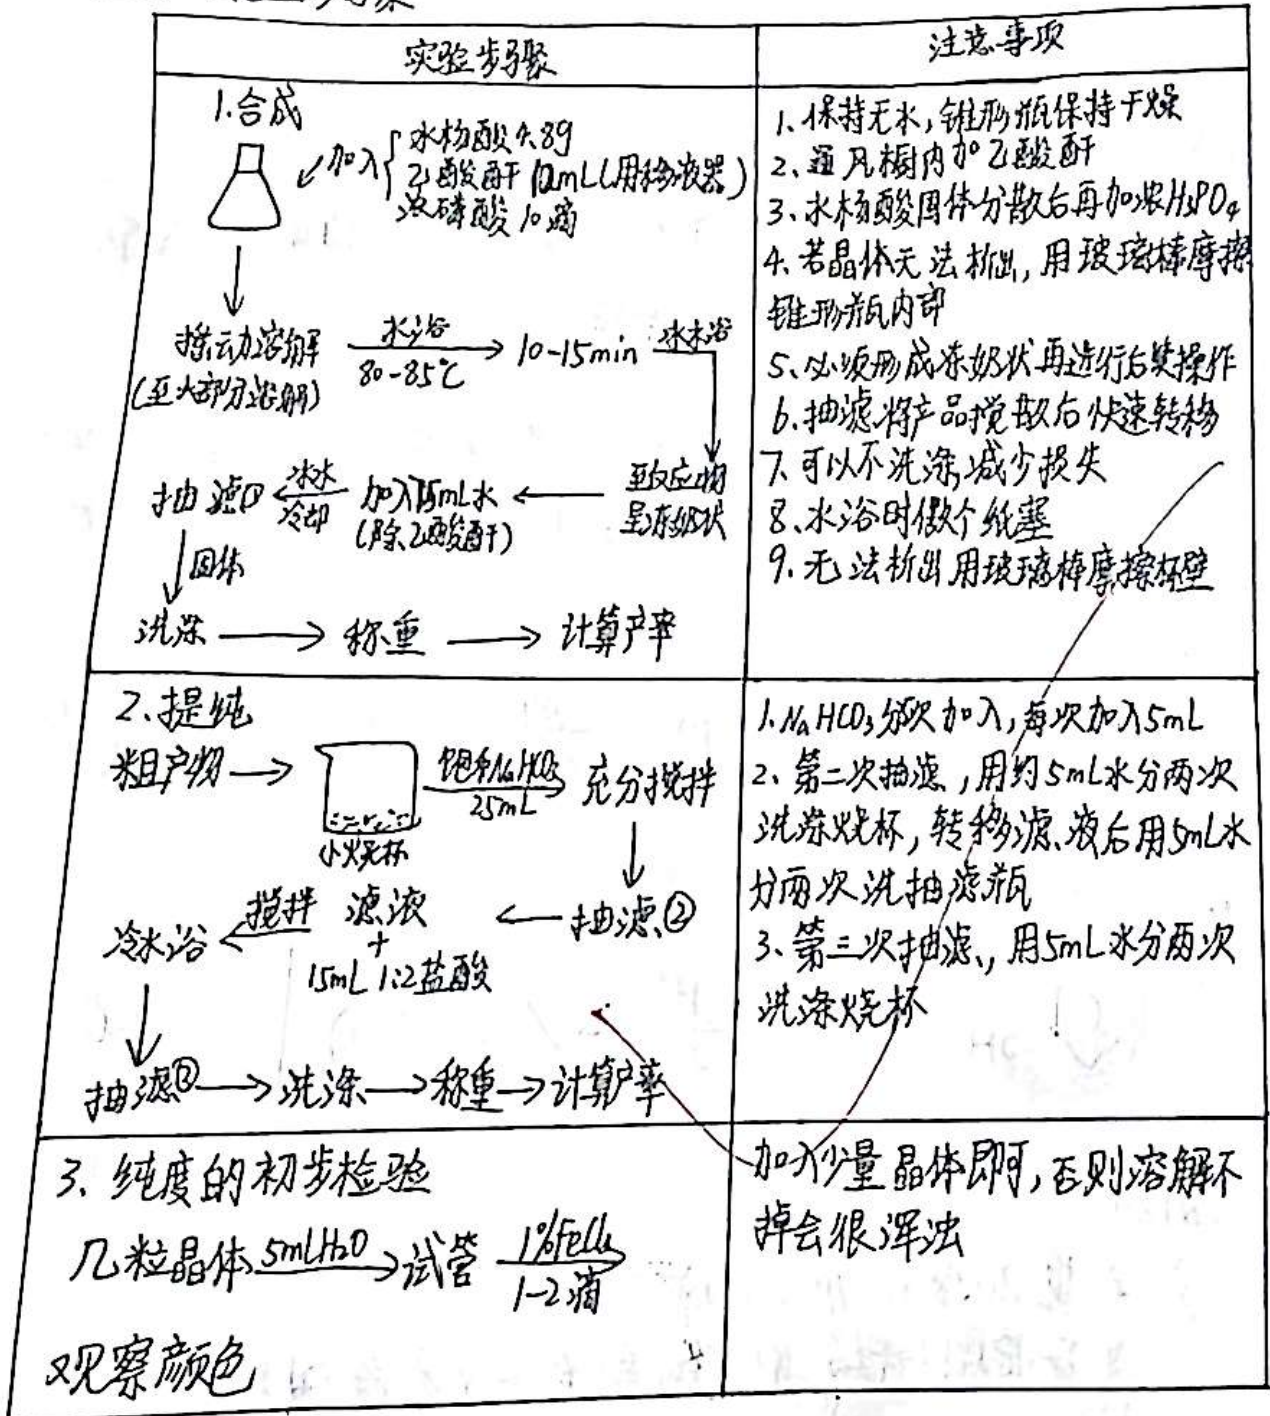 实验步骤
注意事项
1.合成
加入
水杨酸4.8g
乙酸酐12mL(用移液器)
浓磷酸10滴
摇动溶解
(至大部分溶解)
水浴
80-85℃
10-15min
冰水浴
至反应物
呈冻奶状
加入75mL水
(除乙酸酐)
冰水
冷却
抽滤①
固体
洗涤
称重
计算产率
1、保持无水,锥形瓶保持干燥
2、通风橱内加乙酸酐
3、水杨酸固体分散后再加浓H3PO4
4、若晶体无法析出,用玻璃棒摩擦
锥形瓶内部
5、必须形成冻奶状再进行后续操作
6、抽滤.将产品搅散后快速转移
7、可以不洗涤,减少损失
8、水浴时做个纸塞
9、无法析出用玻璃棒摩擦杯壁
2、提纯
粗产物
小烧杯
饱和NaHCO3
25mL
充分搅拌
抽滤②
滤液
+
15mL 1:2盐酸
搅拌
冷水浴
抽滤③
洗涤
称重
计算产率
1.NaHCO3分次加入,每次加入5mL
2、第二次抽滤,用约5mL水分两次
洗涤烧杯,转移滤液后用5mL水
分两次洗抽滤瓶
3、第三次抽滤,用5mL水分两次
洗涤烧杯
3、纯度的初步检验
几粒晶体
5mLH2O
试管
1%FeCl3
1-2滴
观察颜色
加入少量晶体即可,否则溶解不
掉会很浑浊